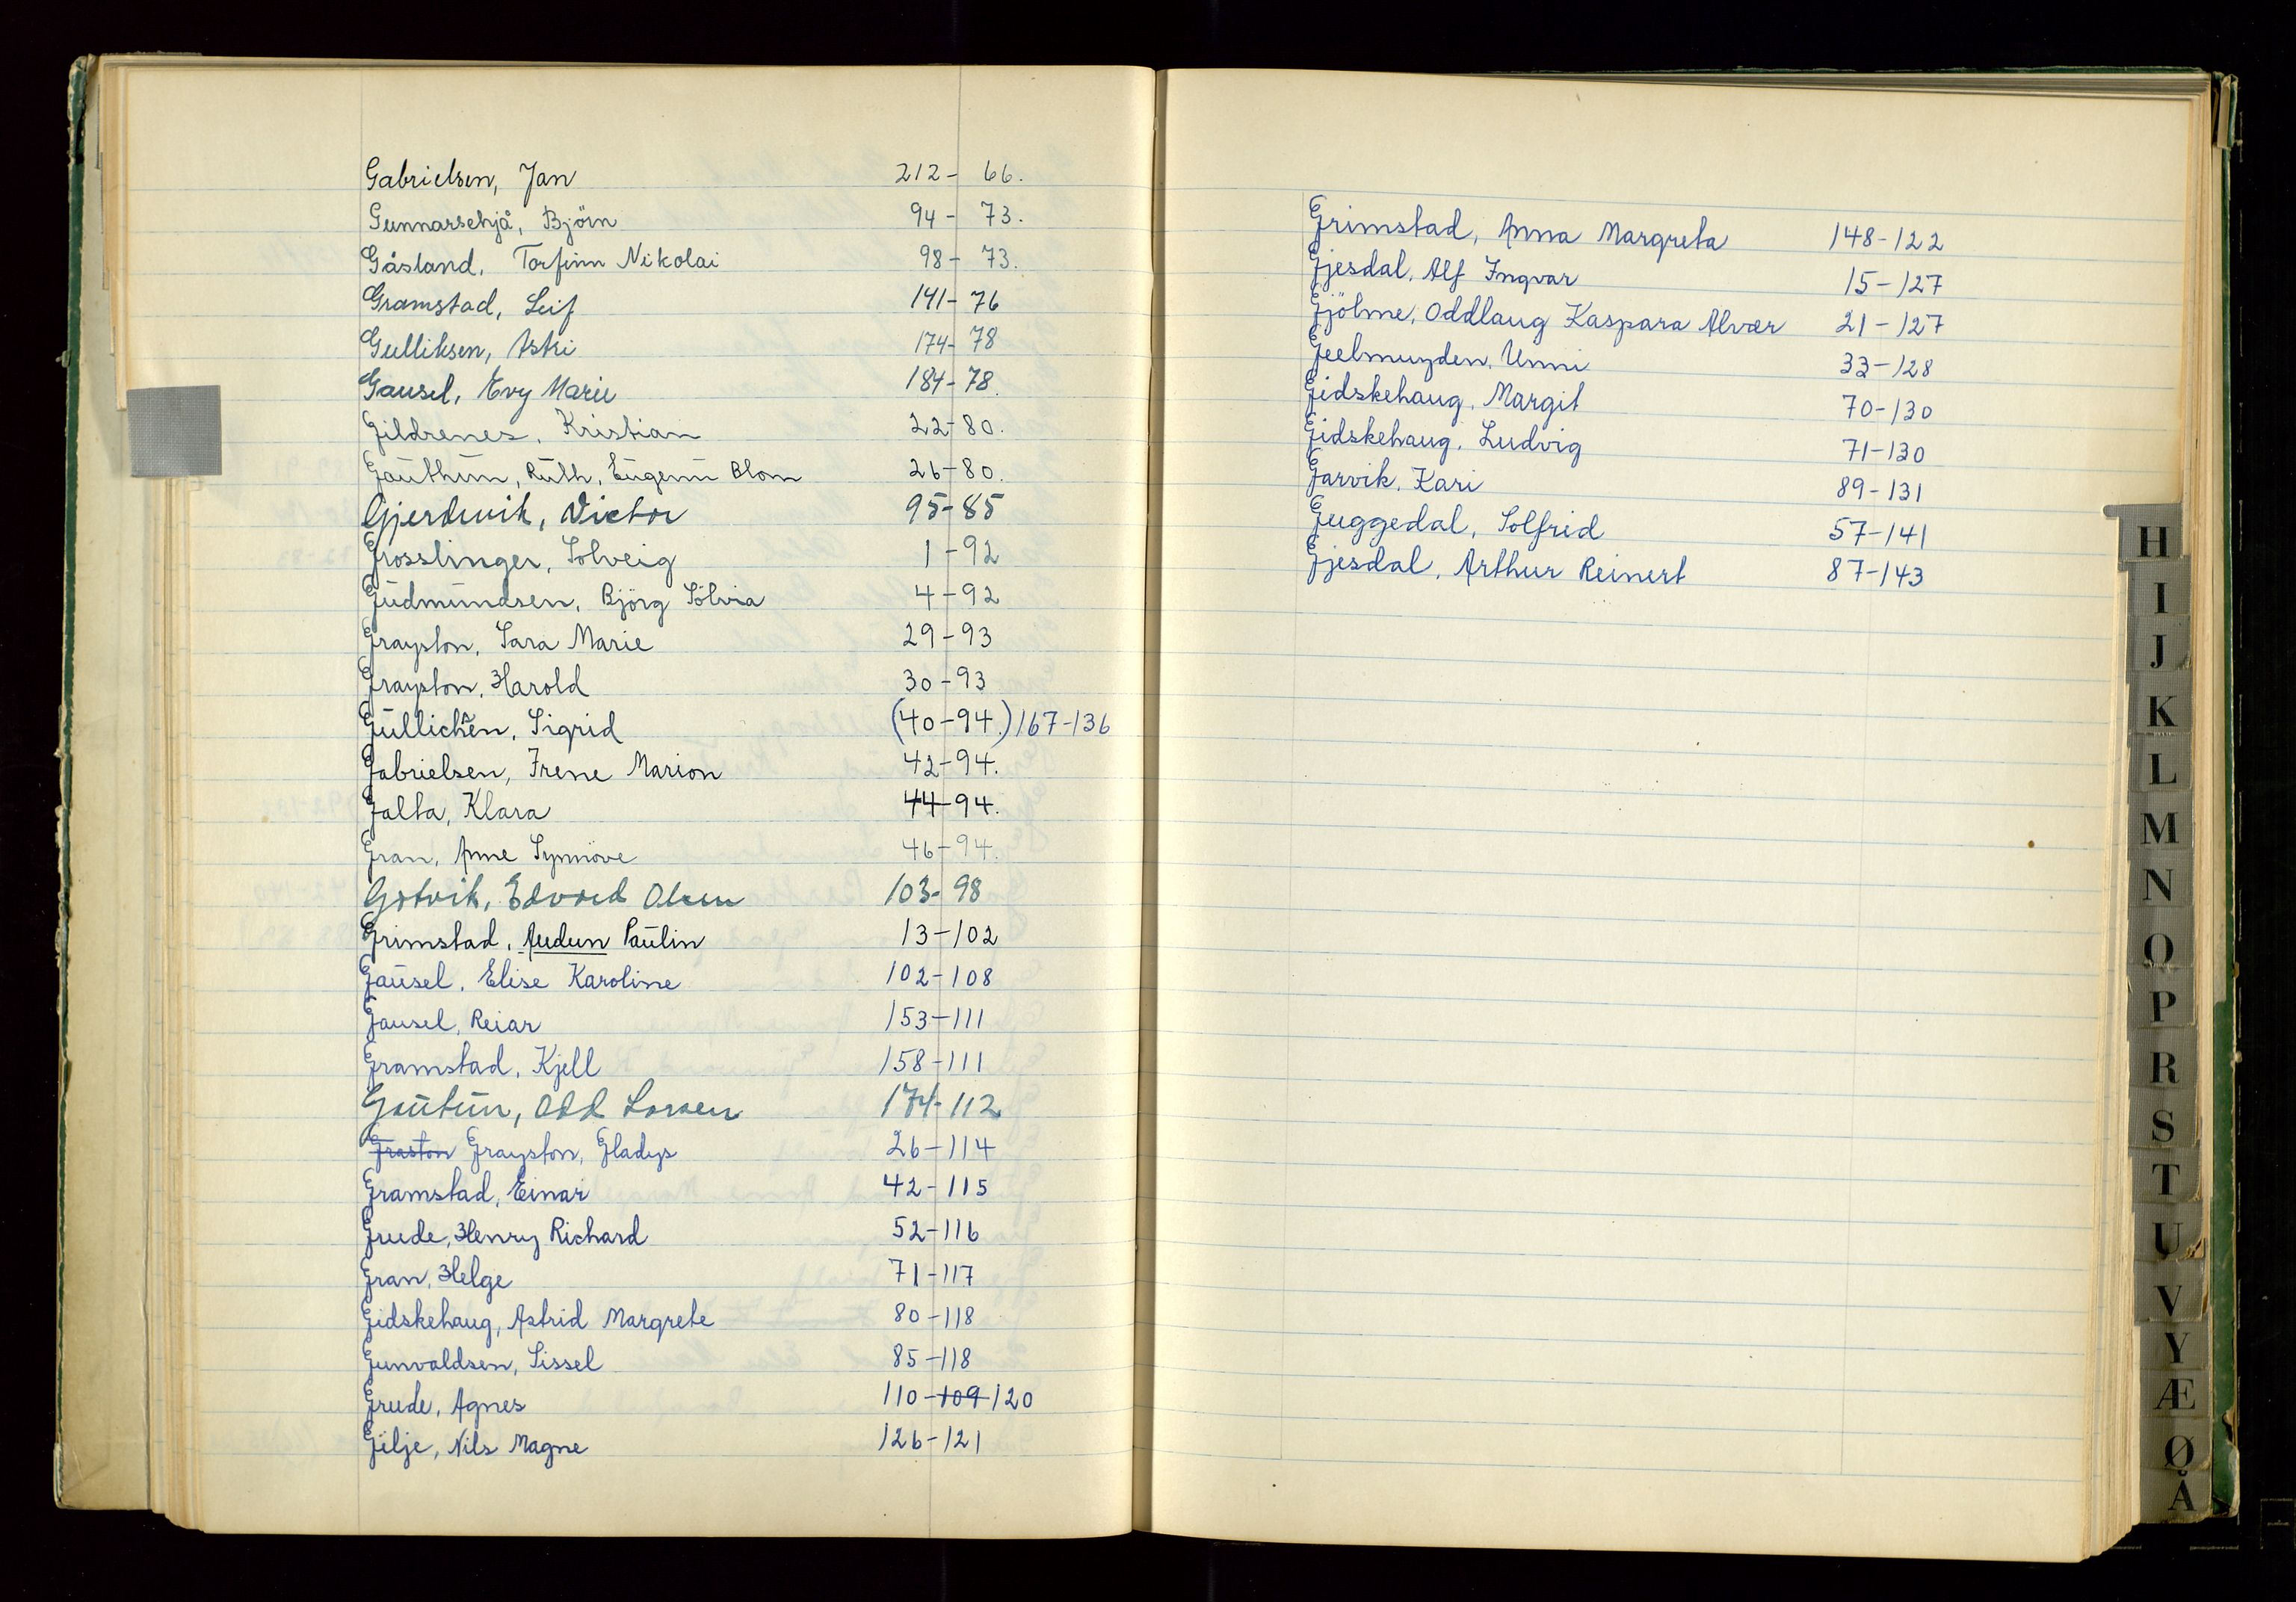 Gabrielsen, Jan 212 - 66.
Gunnarschjå, Björn 94 - 73.
Gåsland, Torfinn Nikolai 98 - 73.
Gramstad, Leif 141 - 76
Gulliksen, Astri 174 - 78
Gausel, Evy Marie 184 - 78.
Gildrenes, Kristian 22 - 80.
Gauthun, Ruth, Eugenie Blom 26 - 80.
Gjerdevik, Victor 95 - 85
Grosslinger, Solveig 1 - 92
Gudmundsen, Björg Sölvia 4 - 92
Grayston, Sara Marie 29 - 93
Grayston, Harold 30 - 93
Gullichsen, Sigrid (40 - 94.) 167-136
Gabrielsen, Irene Marion 42 - 94.
Galta, Klara 44 - 94.
Gran, Anne Synnöve 46 - 94.
Edvard Olsen 103 - 98
Grimstad, Audun Paulin 13 - 102
Gausel, Elise Karoline 102 - 108
Gausel, Reiar 153 - 111
Gramstad, Kjell 158 - 111
Gautun, Odd Larsen 174 - 112
Graston Grayston, Gladys 26 - 114
Gramstad, Einar 42 - 115
Grude, Henry Richard 52 - 116
Gran, Helge 71 - 117
Gidskehaug, Astrid Margrete 80 - 118
Gunvaldsen, Sissel 85 - 118
Grude, Agnes 110 - 109 120
Gilje, Nils Magne 126 - 121
Grimstad, Anna Margreta 148 - 122
Gjesdal, Alf Ingvar 15 - 127
Gjölme, Oddlaug Kaspara Alvær 21 - 127
Geelmuyden, Unni 33 - 128
Gidskehaug, Margit 70 - 130
Gidskehaug, Ludvig 71 - 130
Garvik, Kari 89 - 131
Guggedal, Solfrid 57 - 141
Gjesdal, Arthur Reinert 87 - 143
H
I
J
K
L
M
N
O
P
R
S
T
U
V
Y
Æ
Ø
Å